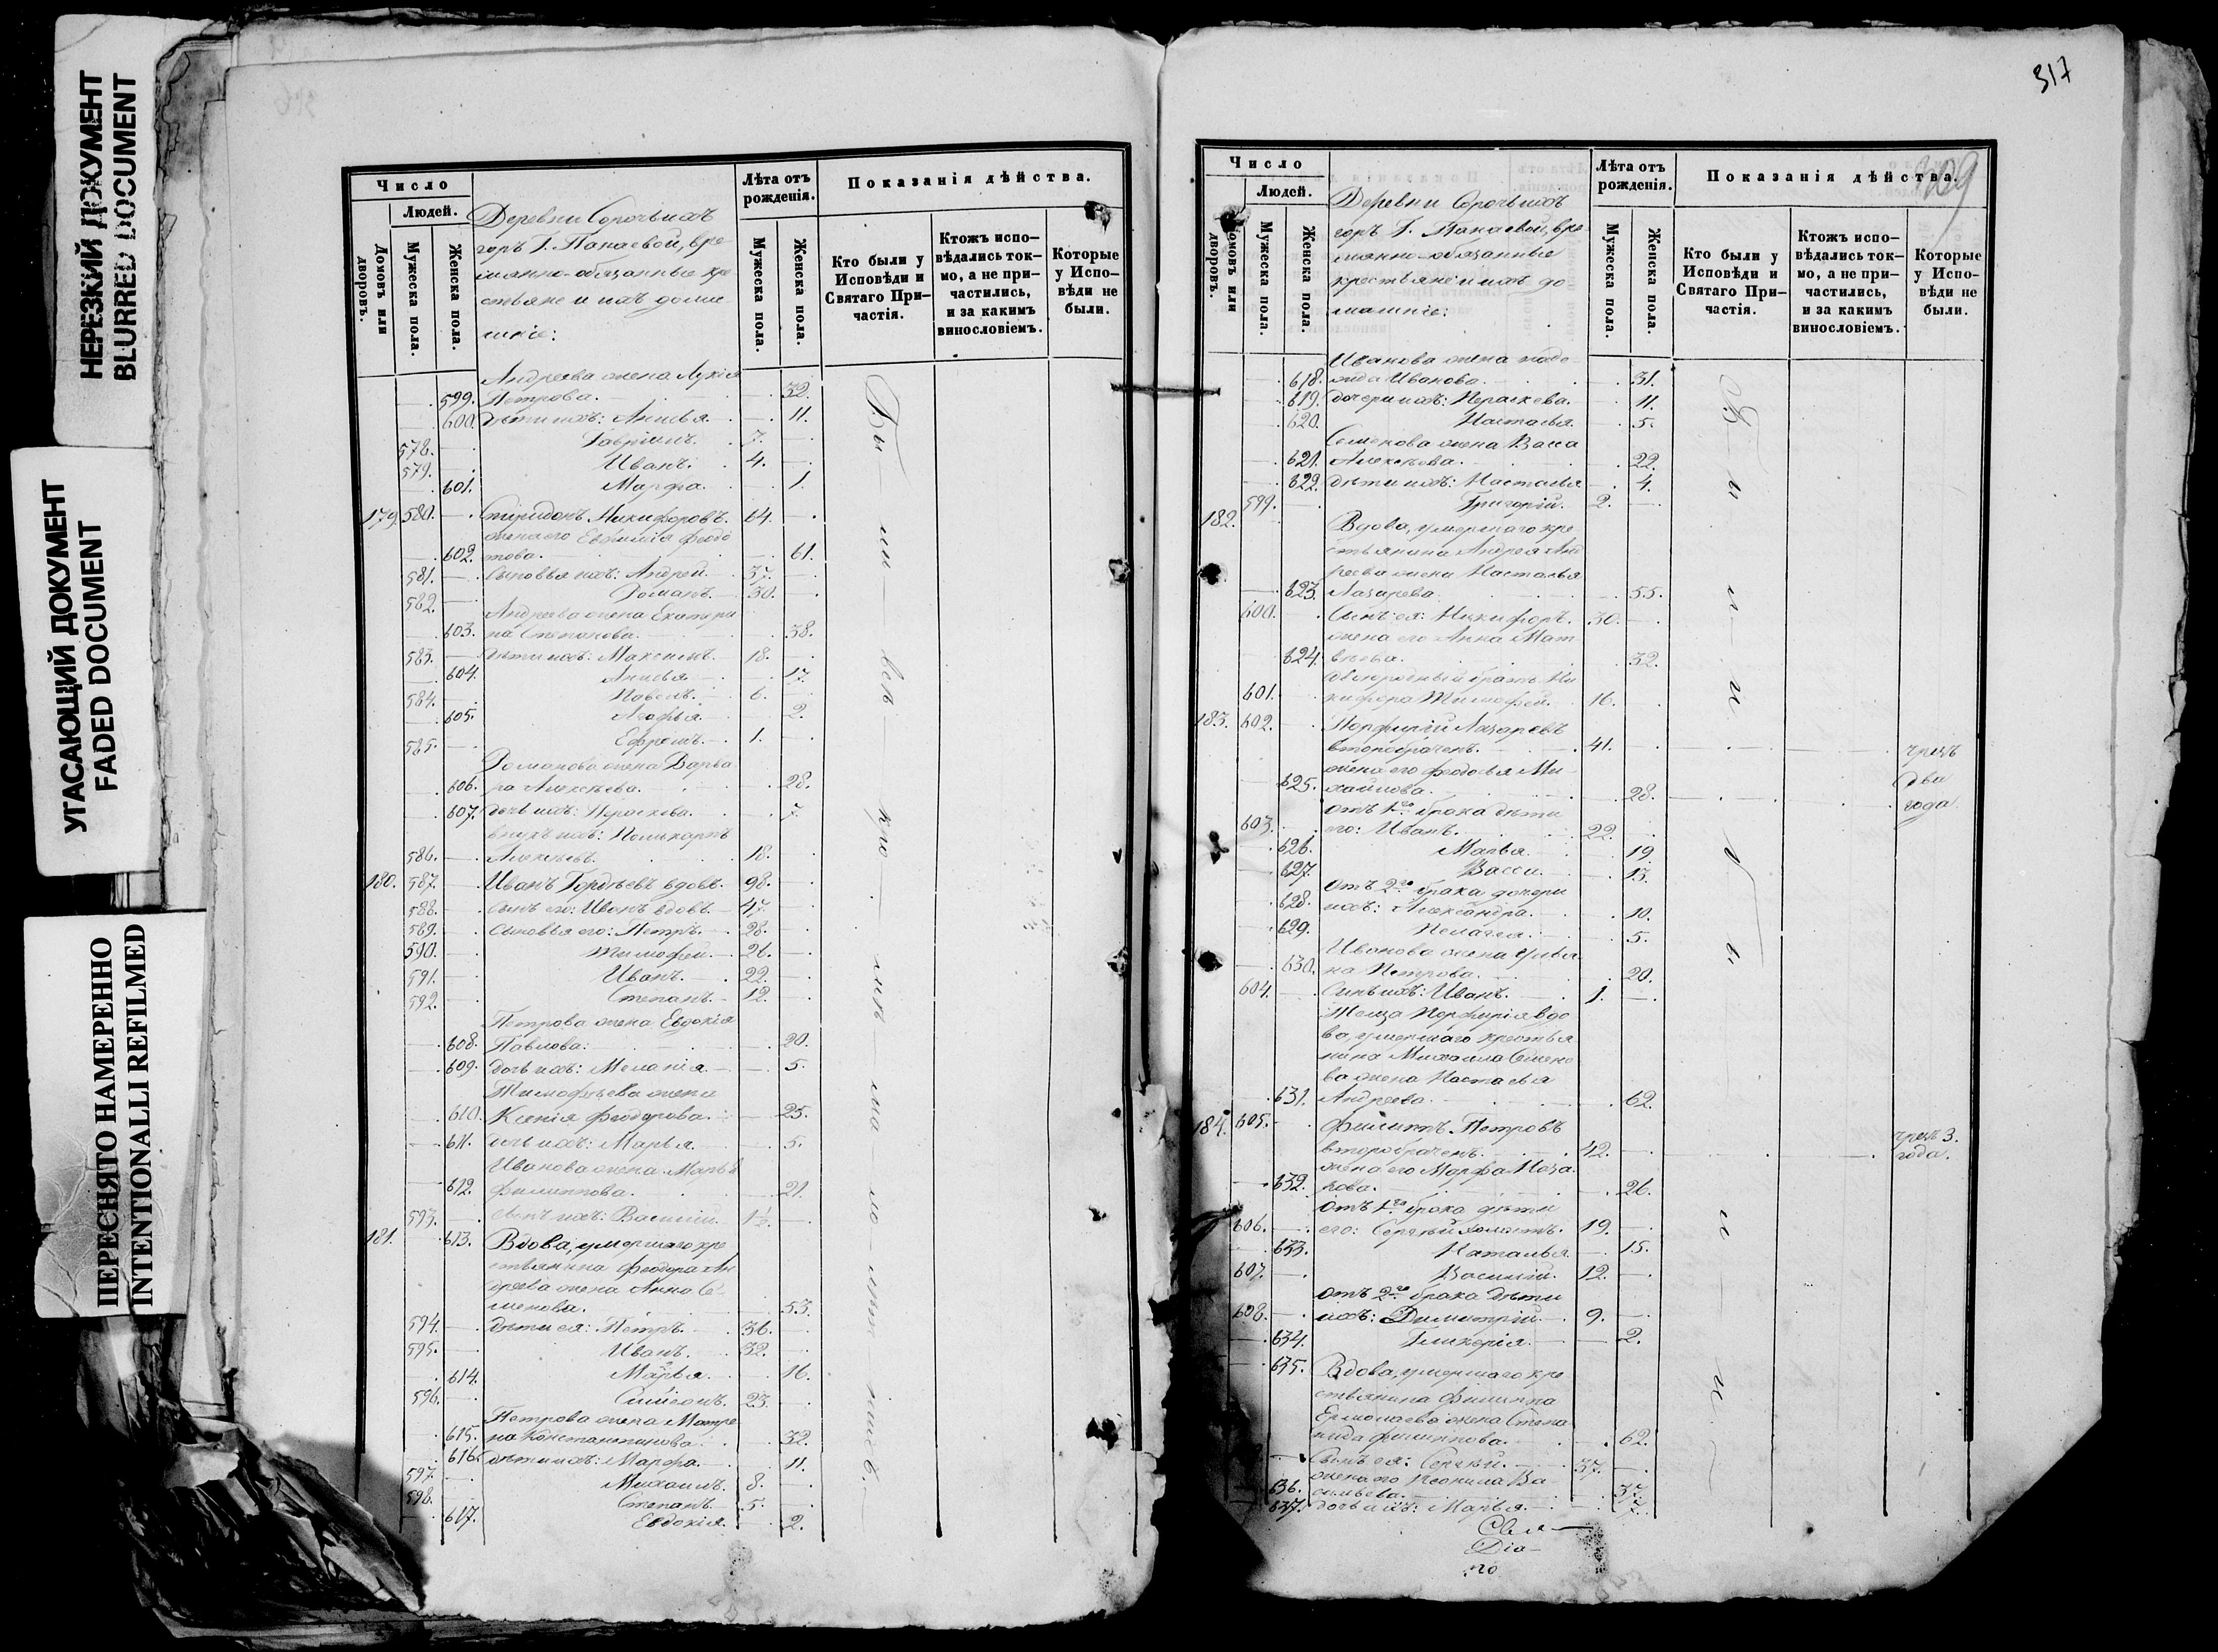 НЕРЕЗКИЙ ДОКУМЕНТ
BLURRED DOCUMENT
УГАСАЮЩИЙ ДОКУМЕНТ
FADED DOCUMENT
ПЕРЕСНЯТО НАМЕРЕННО
INTENTIONALLI REFILMED
Число
Людей.
Домовъ или дворовъ.
Мужеска пола.
Женска пола.
Лѣта отъ рожденія.
Мужеска пола.
Женска пола.
Показанія дѣйства.
Кто были у Исповѣди и Святаго При-частія.
Ктожъ испо-вѣдались ток-мо, а не при-частились, и за какимъ винословіемъ.
Которые у Испо-вѣди не были.
Деревни Сорочьихъ
горъ Г. Панаевой, вре
менно-обязанные кре
стьяне и ихъ дома
шніе:
Андреева жена Лукія
599. Петрова. 32.
600. дѣти ихъ: Анисья. 11.
578. Гавріилъ. 7.
579. Иванъ. 4.
601. Марфа. 1.
179 580. Спиридонъ Никифоровъ. 64.
жена его Евѳимія Ѳедо
602. това. 61.
581. сыновья ихъ: Андрей. 37.
582. Романъ. 30.
Андреева жена Екатери
603. на Степанова. 38.
583. дѣти ихъ: Максимъ. 18.
604. Анисья. 17.
584. Павелъ. 6.
605. Агафья. 2.
585. Ефремъ. 1.
Романова жена Варва
606. ра Алексѣева. 28.
607. дочь ихъ: Праскева. 7.
внукъ ихъ: Поликарпъ
586. Алексѣевъ. 18.
180. 587. Иванъ Гордѣевъ вдовъ. 98.
588. сынъ его: Иванъ вдовъ. 47.
589. сыновья его: Петръ. 28.
590. Тимофей. 26.
591. Иванъ. 22.
592. Степанъ. 12.
Петрова жена Евдокія
608. Павлова. 20.
609. дочь ихъ: Меланія. 5.
Тимофѣева жена
610. Ксенія Феодорова. 25.
611. дочь ихъ: Марья. 5.
Иванова жена Марья
612. Филиппова. 21.
593. сынъ ихъ: Василій. 1½.
181. 613. Вдова, умершаго кре
стьянина Феодора Ан
дреева жена Анна Се
менова. 53.
594. дѣти ея: Петръ. 36.
595. Иванъ. 32.
614. Марья. 16.
596. Симеонъ. 23.
Петрова жена Матре
615. на Константинова. 32.
616. дѣти ихъ: Марфа. 11.
597. Михаилъ. 8.
598. Степанъ. 5.
617. Евдокія. 2.
317
309
Число
Людей.
Домовъ или дворовъ.
Мужеска пола.
Женска пола.
Лѣта отъ рожденія.
Мужеска пола.
Женска пола.
Показанія дѣйства.
Кто были у Исповѣди и Святаго При-частія.
Ктожъ испо-вѣдались ток-мо, а не при-частились, и за какимъ винословіемъ.
Которые у Испо-вѣди не были.
Деревни Сорочьихъ
горъ Г. Панаевой, вре
менно-обязанные
крестьяне и ихъ до
машніе:
Иванова жена
618. Иванова. 31.
619. дочери ихъ: Параскева. 11.
620. Настасья. 5.
Семенова жена Васса
621. Алексѣева. 22.
622. дѣти ихъ: Настасья 4.
599. Григорій. 2.
182. Вдова, умершаго кре
стьянина Андрея Анд
реева жена Настасья
623. Лазарева. 55.
600. Сынъ ея: Никифоръ. 30.
жена его Анна Мат
624. вѣева. 32.
двоюродный братъ Ни
601. кифора Тимофей. 16.
183. 602. Порфирій Лазаревъ
второбраченъ. 41. чрезъ
жена его Феодосья Ми- два
625. хайлова. 28. года.
отъ 1го брака дѣти
603. его: Иванъ. 22.
626. Марья. 19.
627. Васса. 13.
отъ 2го брака дочери
628. ихъ: Александра. 10.
629. Пелагея. 5.
Иванова жена Улья
630. на Петрова. 20.
604. Сынъ ихъ: Иванъ. 1.
Теща Порфирія вдо
ва, умершаго крестья
нина Михаила Семено
ва жена Настасья
631. Андреева. 62.
184. 605. Филиппъ Петровъ
второбраченъ. 42. чрезъ 3. года.
жена его Марфа Наза
632. рова. 26.
отъ 1го брака дѣти
606. его: Сергѣй холостъ. 19.
633. Наталья. 15.
607. Василій. 12.
отъ 2го брака дѣти
608. ихъ: Димитрій. 9.
634. Гликерія. 2.
635. Вдова, умершаго кре
стьянина Филиппа
Ермолаева жена Степа
нида Филиппова. 62.
Сынъ ея: Сергѣй. 37.
жена его Неонила Ва
636. сильева. 37.
637. дочь ихъ: Марья. 7.